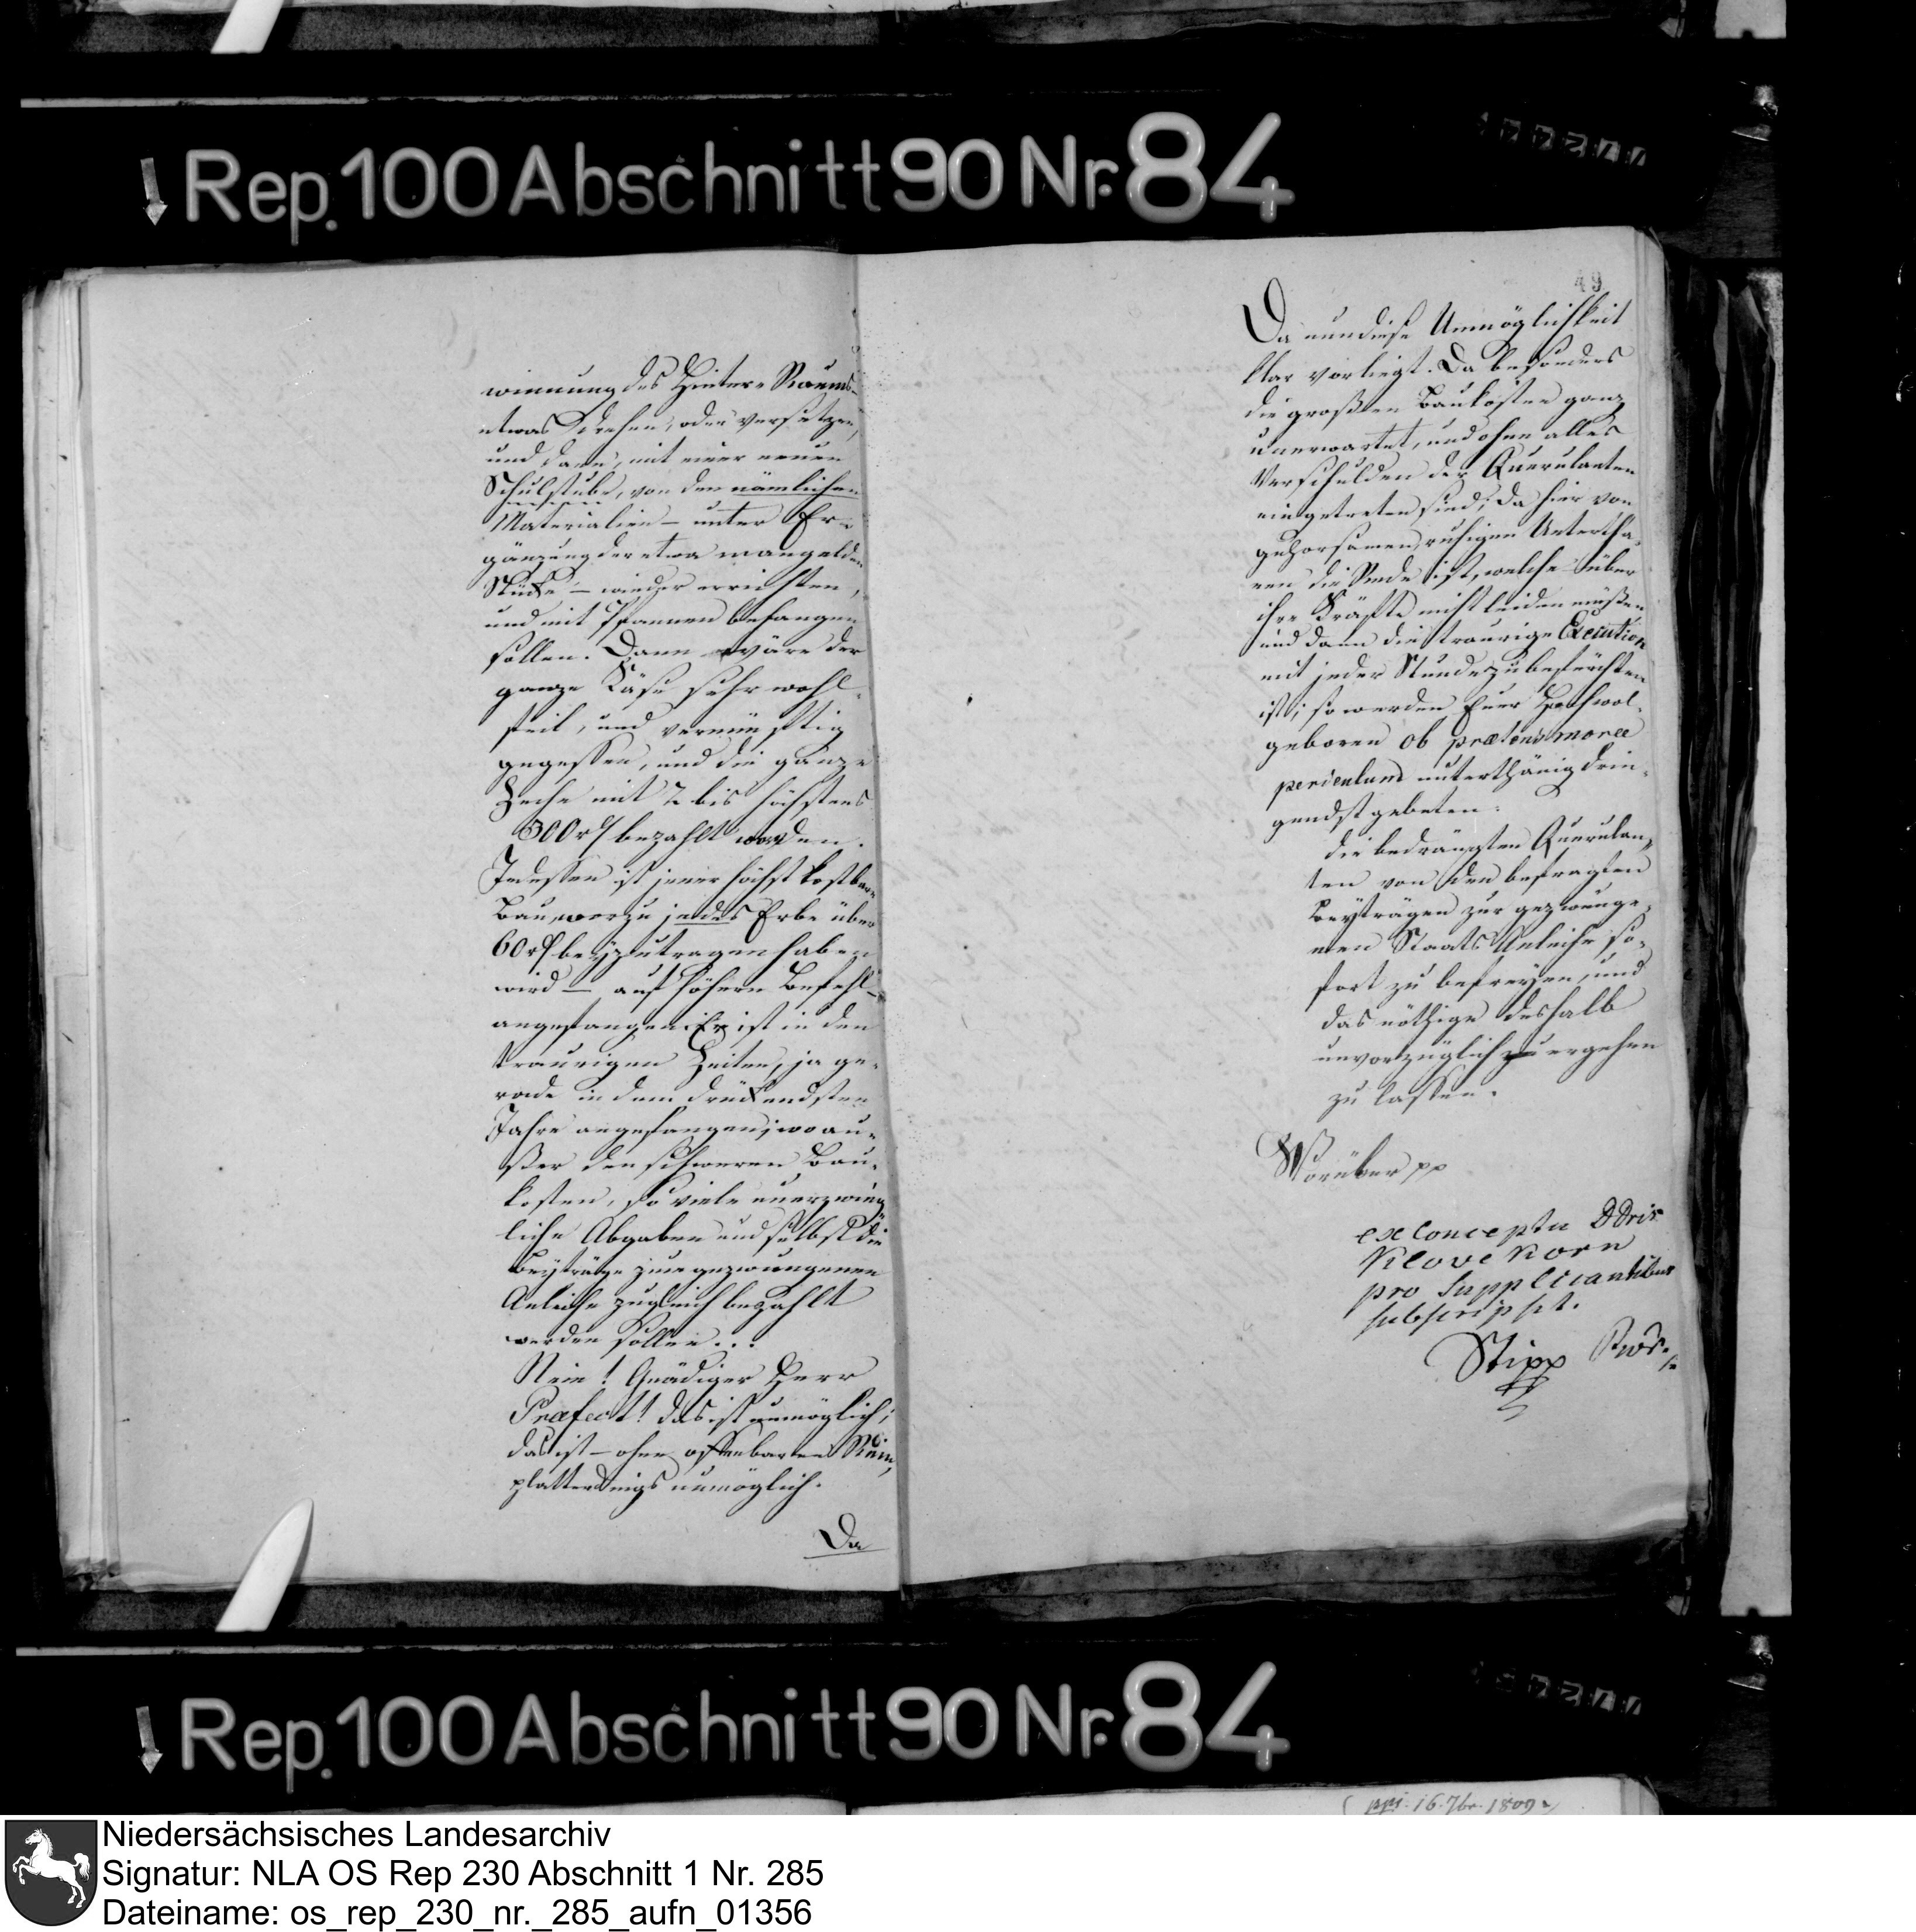 Rep. 100 Abschnitt 90 Nr. 84
winnung des Hinter-Raums
etwas drehen, oder versetzen,
und dann, mit einer neuen
Schulstube, von den nämlichen
Materialien – unter Er-
gänzung der etwa mangelden
Stücke – wieder errichten,
und mit Pfannen behangen
sollen. Dann wäre der
ganze Käse sehr wohl-
feil, und vernünftig
gegessen, und die ganze
Zeche mit 2 bis höchstens
300 rt bezahlt worden.
Indessen ist jener höchst kostbare
Bau, worzu jedes Erbe über
60 rt beyzutragen haben
wird – auf höhern Befehl –
angefangen; Er ist in den
traurigen Zeiten, ja ge-
rade in dem drückendsten
Jahre angefangen, wo au-
ßer den schweren Bau-
kosten, so viele unerzwing-
liche Abgaben und selbst die
Beyträge zur gezwungenen
Anleihe zugleich bezahlt
werden sollen...
Nein! Gnädiger Herr
Præfect! das ist unmöglich;
das ist – ohne offenbaren Ruin,
platterdings unmöglich.
Da
49
Da nun diese Unmöglichkeit
klar vorliegt. Da besonders
die großen Baukosten ganz
unerwartet, und ohne alles
Verschulden der Querulanten
eingetreten sind; Da hier von
gehorsamen, ruhigen Untertha-
nen die Rede ist, welche über
ihre Kräfte nicht leiden müßen
und dann die traurige Execution
mit jeder Stunde zu befürchten
ist; so werden Euer Hochwol-
geboren ob præsens moræ
periculum unterthänig drin-
gendst gebeten:
die bedrängten Querulan-
ten von den befragten
Beyträgen zur gezwunge-
nen Staats Anleihe so-
fort zu befreyen, und
das nöthige deshalb
unvorzüglich zu ergehen
zu lassen.
Worüber pp
ex Conceptu DDris
Klovekorn
pro Supplicantibus
subscripsit.
Stipp
Rep. 100 Abschnitt 90 Nr. 84
ppt. 16. 7br. 1809
Niedersächsisches Landesarchiv
Signatur: NLA OS Rep 230 Abschnitt 1 Nr. 285
Dateiname: os_rep_230_nr._285_aufn_01356